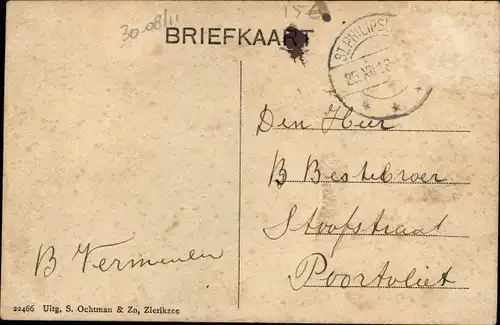 30-08/11
15€
BRIEFKAART
ST. PHILIPSL
25 XII 1
Den Heer
B Bestebroer
Stoofstraat
Poortvliet
B. Vermeulen
22466 Uitg, S. Ochtman & Zn, Zierikzee